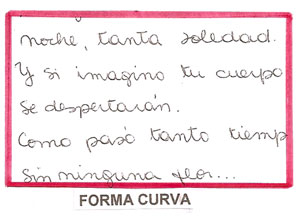 noche, tanta soledad.
Y si imagino tu cuerpo
se despertarán.
Como pasó tanto tiemp
sin ninguna flor...
FORMA CURVA